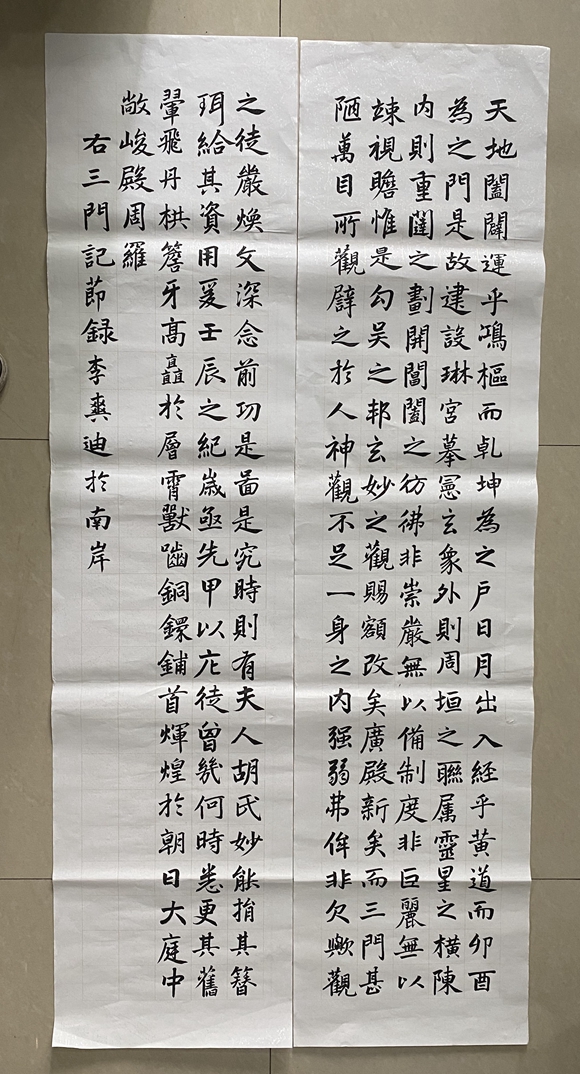 天地闔闢運乎鴻樞而乹坤為之户日月出入経乎黄道而卯酉
為之門是故建設琳宮摹憲玄象外則周垣之聯属靈星之横陳
内則重闉之劃開閶闔之彷彿非崇嚴無以備制度非巨麗無以
竦視瞻惟是勾吴之邦玄妙之觀賜額改矣廣殿新矣而三門甚
陋萬目所觀譬之於人神觀不足一身之内强弱弗侔非欠歟觀
之徒嚴煥文深念前功是啚是究時則有夫人胡氏妙能捐其簪
珥給其資用爰壬辰之紀歳亟先甲以庀徒曾幾何時悉更其舊
翬飛丹栱簷牙高矗於層霄獸嚙銅鐶鋪首輝煌於朝日大庭中
敞峻殿周羅
右三門記節録李爽迪於南岸